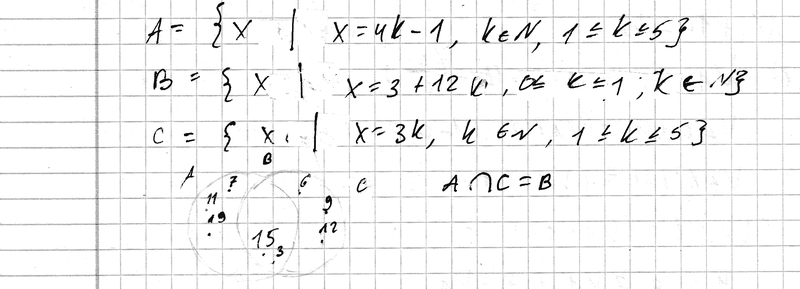 A = { x | x = 4k - 1, k ∈ N, 1 ≤ k ≤ 5 }
B = { x | x = 3 + 12 k, 0 ≤ k ≤ 1 ; k ∈ N }
C = { x. | x = 3k, k ∈ N, 1 ≤ k ≤ 5 }
B
A 7 6 C A ∩ C = B
11 9
19 12
15 3